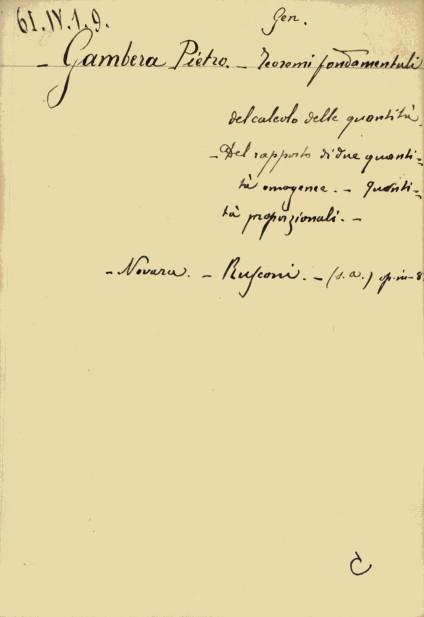 61.IV.1.9.
Gen.
- Gambera Piétro. - Teoremi fondamentali
del calcolo delle quantità.
- Del rapporto di due quanti-
tà omogenee. - Quanti-
tà proporzionali. -
- Novara. - Rusconi. - (s.a.) op. in-8
C